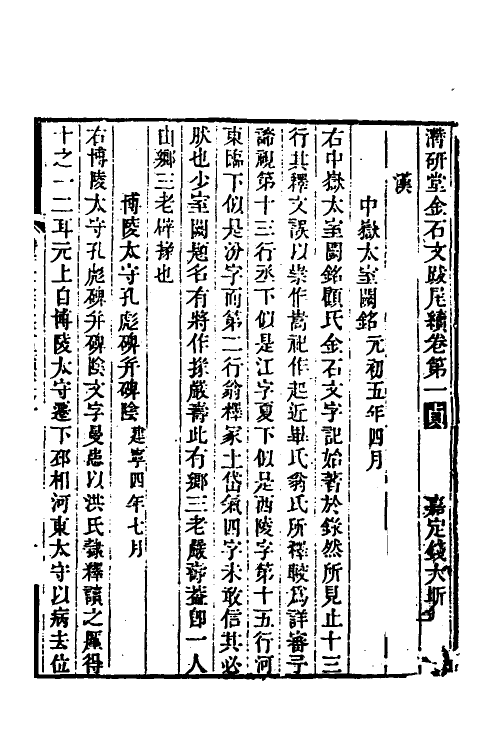 潛研堂金石文跋尾續卷第一 貞 嘉定錢大昕
漢
中嶽太室闕銘元初五年四月
右中嶽太室闕銘顧氏金石文字記始著於錄然所見止十三
行其釋文誤以崇作嵩祀作起近畢氏翁氏所釋較為詳審予
諦視第十三行丞下似是江字夏下似是西陵字第十五行河
東臨下似是汾字而第二行翁釋冢土岱氣四字未敢信其必
然也少室闕題名有將作掾嚴壽此有鄉三老嚴壽蓋卽一人
山鄉三老辟掾也
博陵太守孔彪碑并碑陰建寧四年七月
右博陵太守孔彪碑并碑陰文字曼患以洪氏隸釋讀之厪得
十之一二耳元上自博陵太守遷下邳相河東太守以病去位